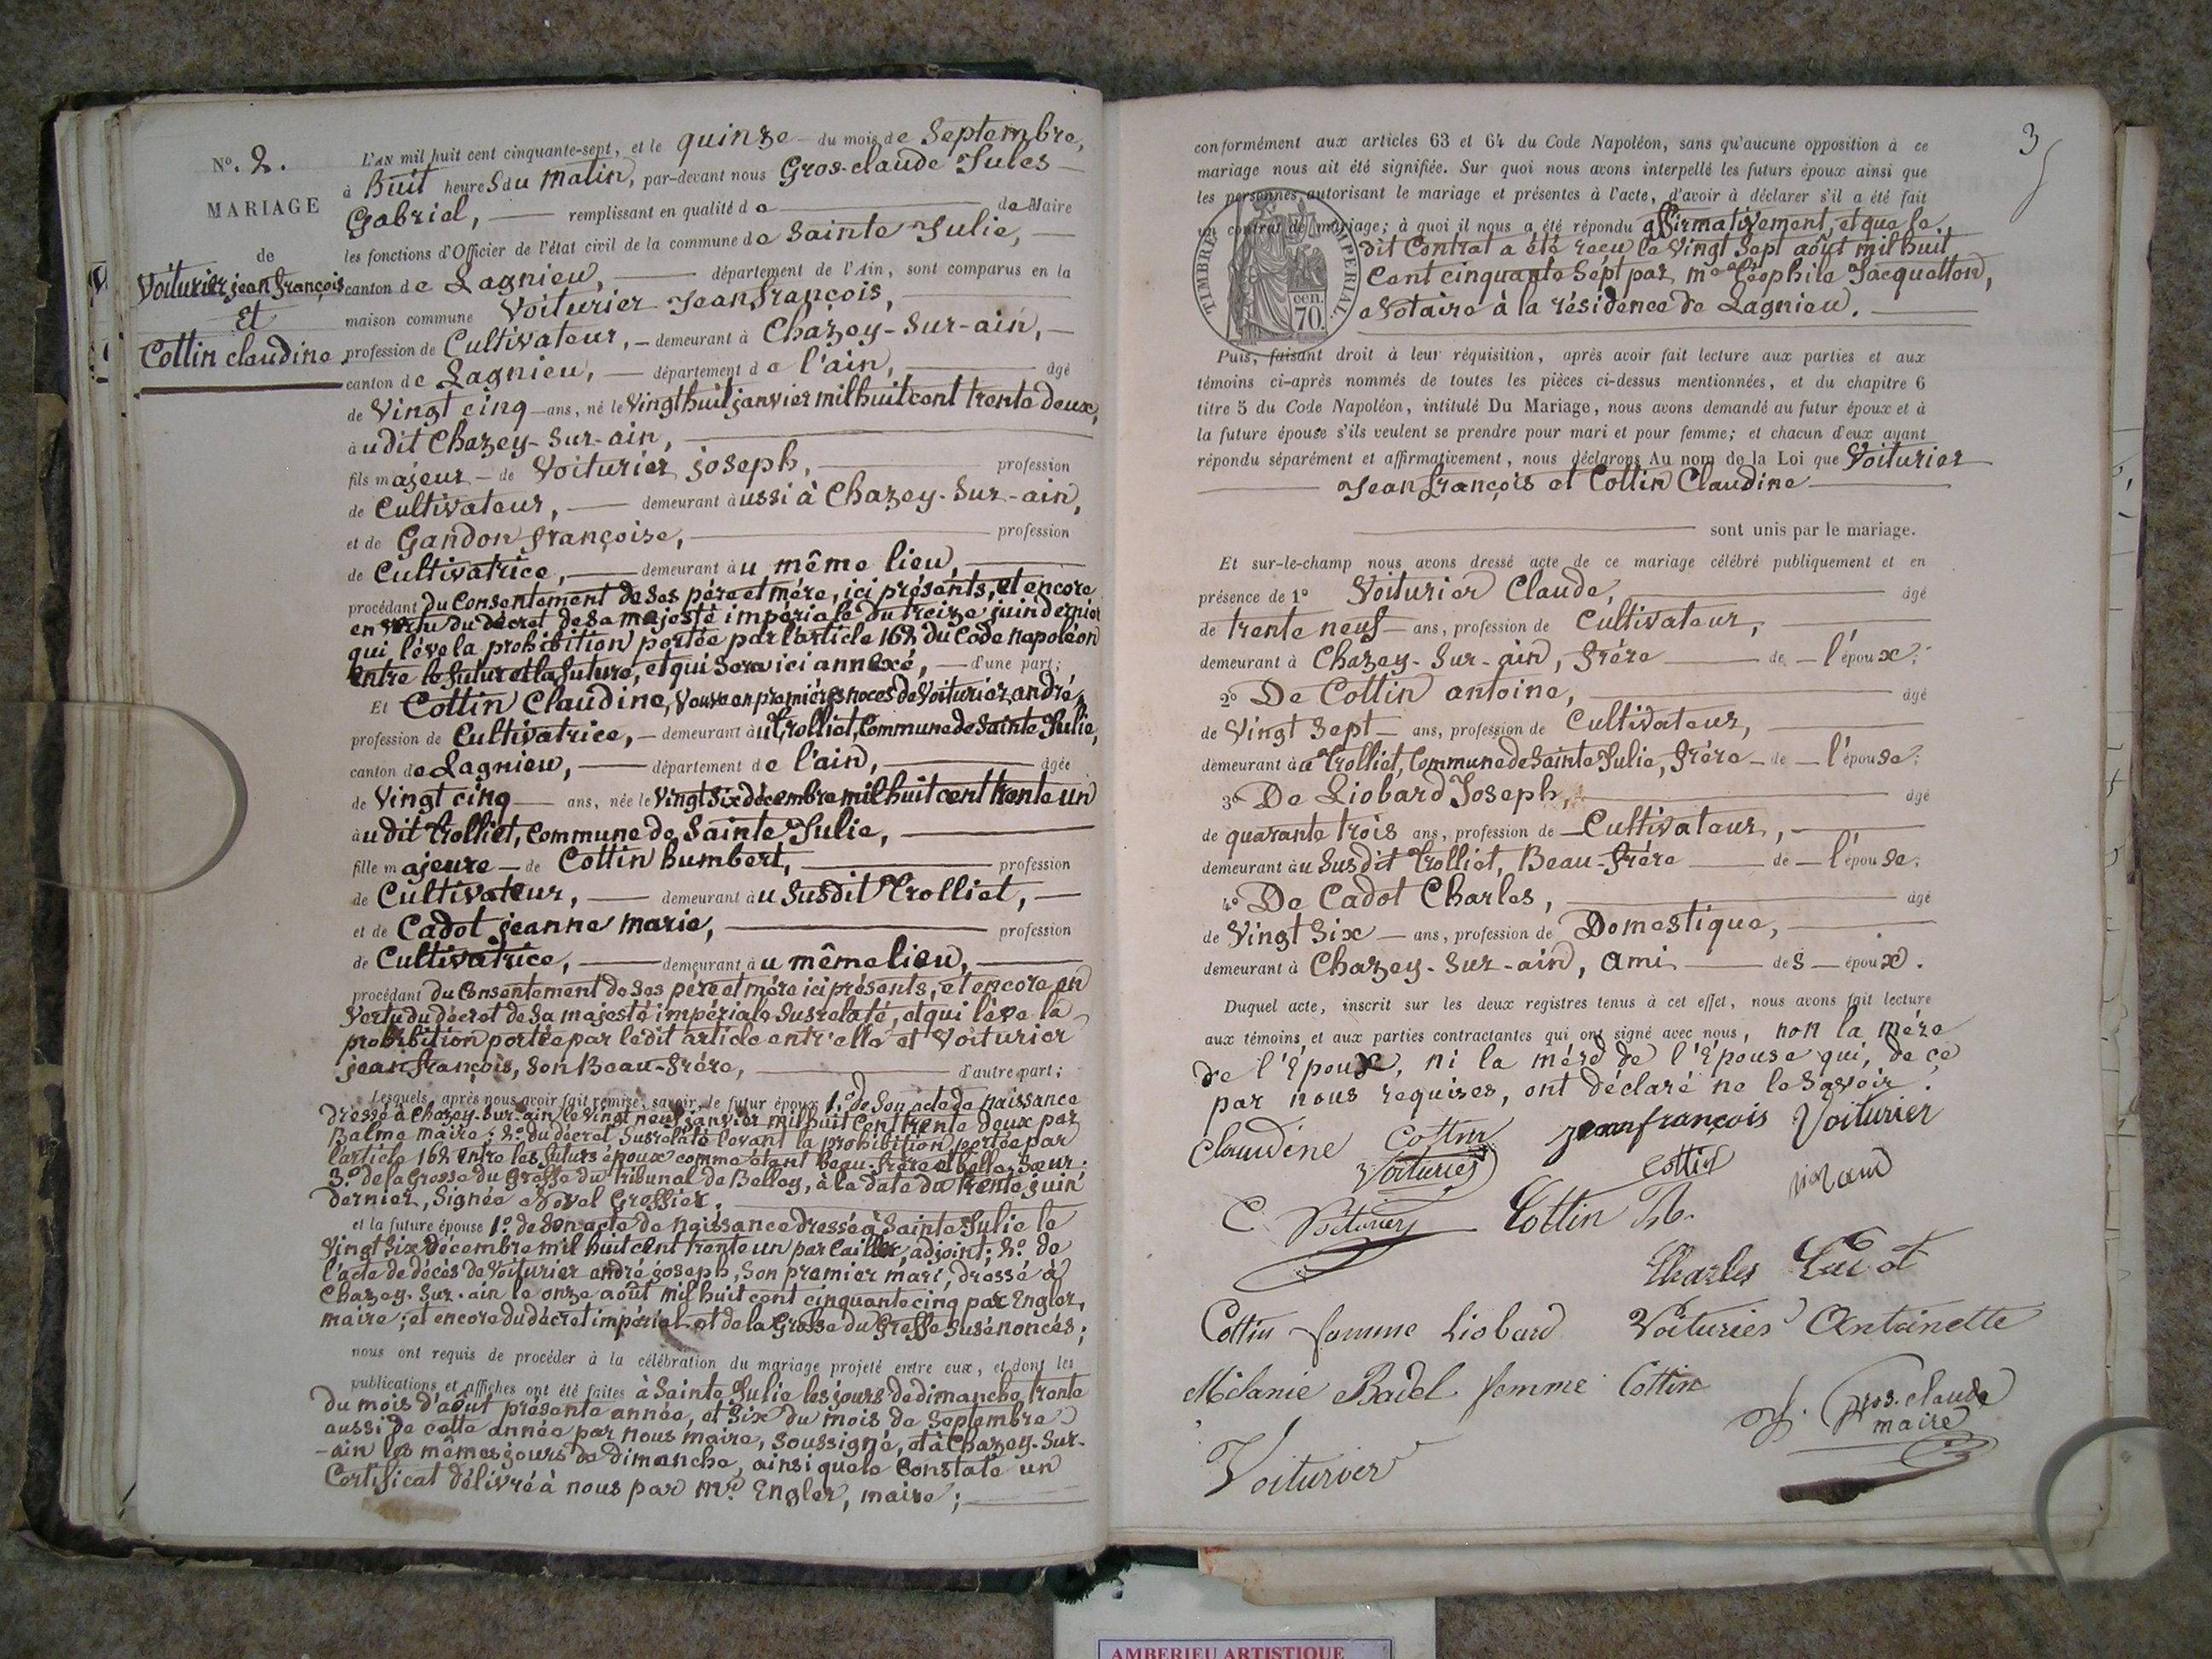 N.º 2.
MARIAGE
de
Voiturier jean françois
Et
Cottin claudine
L'AN mil huit cent cinquante-sept, et le quinze du mois de Septembre,
à huit heures du matin, par-devant nous Gros-claude Jules
Gabriel, remplissant en qualité de de Maire
les fonctions d'Officier de l'état civil de la commune de Sainte Julie,
canton de Lagnieu, département de l'Ain, sont comparus en la
maison commune Voiturier Jean françois,
profession de Cultivateur, demeurant à Chazey-Sur-ain,
canton de Lagnieu, département de l'ain, âgé
de Vingt cinq ans, né le Vingt huit janvier mil huit cent trente deux,
au dit Chazey-Sur-ain,
fils majeur de Voiturier joseph, profession
de Cultivateur, demeurant aussi à Chazey-Sur-ain,
et de Gandon françoise, profession
de Cultivatrice, demeurant au même lieu,
procédant du Consentement de Ses père et mère, ici présents, et encore
en vertu du décret de Sa majesté impériale du treize juin dernier
qui lève la prohibition portée par l'article 162 du Code napoléon
Entre le futur et la future, et qui Sera ici annexé, d'une part;
Et Cottin Claudine, Veuve en premières noces de Voiturier andré,
profession de Cultivatrice, demeurant au Trolliet, Commune de Sainte Julie,
canton de Lagnieu, département de l'ain, âgée
de Vingt cinq ans, née le Vingt Six décembre mil huit cent trente un
au dit Trolliet, Commune de Sainte Julie,
fille majeure de Cottin humbert, profession
de Cultivateur, demeurant au Susdit Trolliet,
et de Cadot jeanne marie, profession
de Cultivatrice, demeurant au même lieu,
procédant du Consentement de Ses père et mère ici présents, et encore en
Vertu du décret de Sa majesté impériale Susrelaté, et qui lève la
prohibition portée par ledit article entr'elle et Voiturier
jean françois, Son Beau-frère, d'autre part;
Lesquels, après nous avoir fait remise, savoir, le futur époux 1.º de Son acte de naissance
dressé à Chazey-Sur-ain le Vingt neuf janvier mil huit Cent trente deux par
Balme maire; 2.º du décret Susrelaté levant la prohibition portée par
l'article 162 Entre les futurs époux comme étant beau-frère et belle-Sœur.
3.º de la Grosse du Greffe du tribunal de Belley, à la date du trente juin
dernier, Signée Novel Greffier.
et la future épouse 1.º de Son acte de naissance dressé à Sainte Julie le
Vingt Six décembre mil huit cent trente un par Cailler, adjoint; 2.º de
l'acte de décès de Voiturier andré joseph, Son premier mari, dressé à
Chazey-Sur-ain le onze août mil huit cent cinquante cinq par Engler,
maire; et encore du décret impérial et de la Grosse du Greffe Susénoncés;
nous ont requis de procéder à la célébration du mariage projeté entre eux, et dont les
publications et affiches ont été faites à Sainte Julie les jours de dimanche trente
du mois d'août présente année, et Six du mois de Septembre
aussi de cette année par nous maire, Soussigné, et à Chazey-Sur-
-ain les mêmes jours de dimanche, ainsi que le Constate un
Certificat délivré à nous par Mr. Engler, maire;
3
conformément aux articles 63 et 64 du Code Napoléon, sans qu'aucune opposition à ce
mariage nous ait été signifiée. Sur quoi nous avons interpellé les futurs époux ainsi que
les personnes autorisant le mariage et présentes à l'acte, d'avoir à déclarer s'il a été fait
un contrat de mariage; à quoi il nous a été répondu affirmativement, et que le
dit Contrat a été reçu le Vingt Sept août mil huit
Cent cinquante Sept par me Téophile Jacquetton,
Notaire à la résidence de Lagnieu.
TIMBRE IMPERIAL
cen.
70.
Puis, faisant droit à leur réquisition, après avoir fait lecture aux parties et aux
témoins ci-après nommés de toutes les pièces ci-dessus mentionnées, et du chapitre 6
titre 5 du Code Napoléon, intitulé Du Mariage, nous avons demandé au futur époux et à
la future épouse s'ils veulent se prendre pour mari et pour femme; et chacun d'eux ayant
répondu séparément et affirmativement, nous déclarons Au nom de la Loi que Voiturier
Jean françois et Cottin Claudine
sont unis par le mariage.
Et sur-le-champ nous avons dressé acte de ce mariage célébré publiquement et en
présence de 1º Voiturier Claude, âgé
de trente neuf ans, profession de Cultivateur,
demeurant à Chazey-Sur-ain, frère de l'époux.
2º De Cottin antoine, âgé
de Vingt Sept ans, profession de Cultivateur,
demeurant au Trolliet, Commune de Sainte Julie, frère de l'épouse.
3º De Liobard Joseph, âgé
de quarante trois ans, profession de Cultivateur,
demeurant au Susdit Trolliet, Beau-frère de l'épouse.
4º De Cadot Charles, âgé
de Vingt Six ans, profession de Domestique,
demeurant à Chazey-Sur-ain, ami des époux.
Duquel acte, inscrit sur les deux registres tenus à cet effet, nous avons fait lecture
aux témoins et aux parties contractantes qui ont signé avec nous, non la mère
de l'Époux, ni la mère de l'Épouse qui, de ce
par nous requises, ont déclaré ne le Savoir.
Claudine Cottin jeanfrançois Voiturier
Voiturier Cottin
C. Voiturier Cottin
Charles Cadot
Cottin femme Liobard Voiturier Antoinette
Mélanie Badel femme Cottin
J. Gros-claude
maire
Voiturier
AMBERIEU ARTISTIQUE